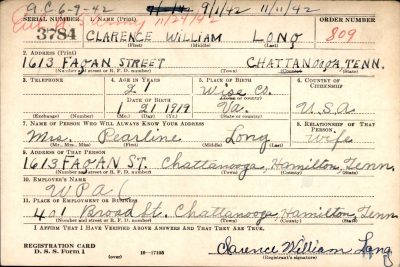 A.C. 6-9-42 9/1/42 11/11/42
11/24/42
SERIAL NUMBER 1. NAME (Print) ORDER NUMBER
3784 CLARENCE WILLIAM LONG 809
(First) (Middle) (Last)
2. ADDRESS (Print)
1613 FAGAN STREET CHATTANOOGA, TENN.
(Number and street or R. F. D. number) (Town) (County) (State)
3. TELEPHONE 4. AGE IN YEARS 5. PLACE OF BIRTH 6. COUNTRY OF CITIZENSHIP
21 Wise Co.
DATE OF BIRTH (Town or county)
1 21 1919 Va. U.S.A
(Exchange) (Number) (Mo.) (Day) (Yr.) (State or country)
7. NAME OF PERSON WHO WILL ALWAYS KNOW YOUR ADDRESS 8. RELATIONSHIP OF THAT PERSON
Mrs. Pearline Long Wife
(Mr., Mrs., Miss) (First) (Middle) (Last)
9. ADDRESS OF THAT PERSON
1613 FAGAN ST. Chattanooga, Hamilton, Tenn.
(Number and street or R. F. D. number) (Town) (County) (State)
10. EMPLOYER'S NAME
WPA
11. PLACE OF EMPLOYMENT OR BUSINESS
401 Broad St. Chattanooga, Hamilton, Tenn
(Number and street or R. F. D. number) (Town) (County) (State)
I AFFIRM THAT I HAVE VERIFIED ABOVE ANSWERS AND THAT THEY ARE TRUE.
REGISTRATION CARD
D. S. S. Form 1 16-17105 Clarence William Long
(Registrant's signature)